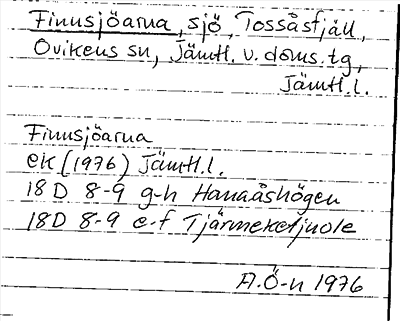 Finnsjöarna, sjö, Tossåsfjäll,
Ovikens sn, Jämtl. v. doms. tg,
Jämtl. l.
Finnsjöarna
ek (1976) Jämtl. l.
18D 8-9 g-h Hanaåshögen
18D 8-9 e-f Tjärmeketjuole
A.Ö-n 1976